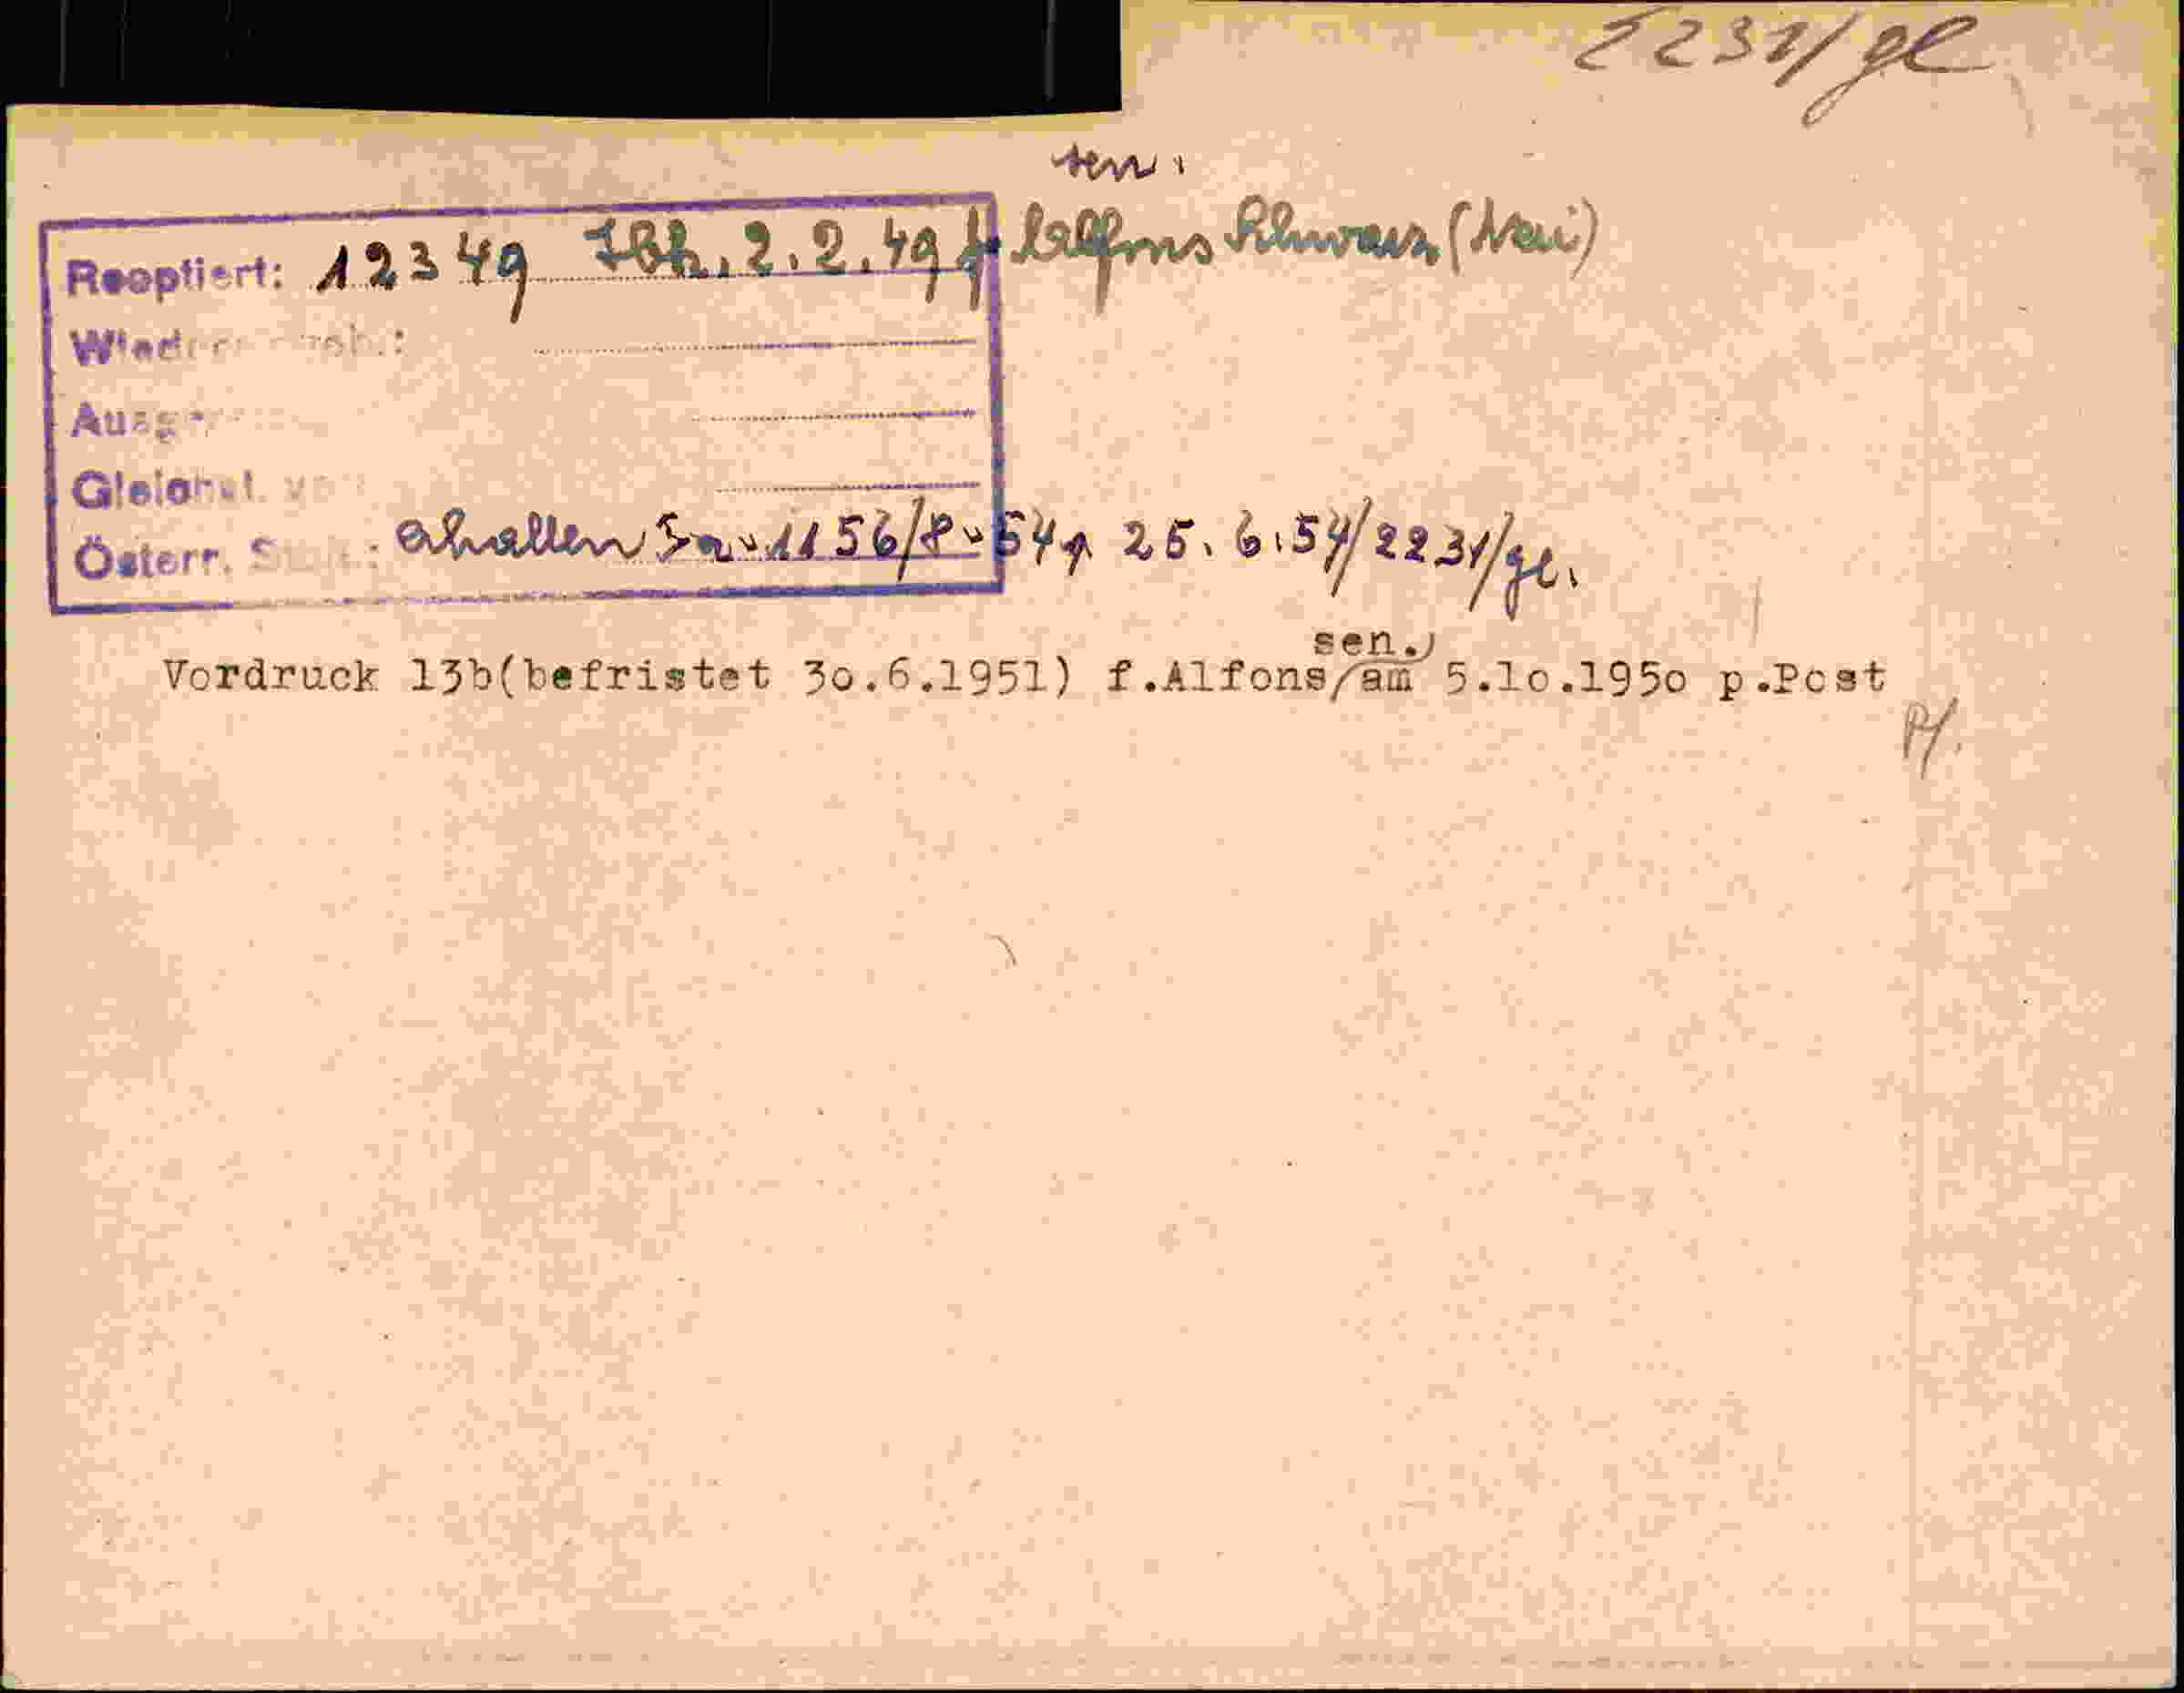 2231/gl
sen.
Reoptiert: 12349 Ibk. 2.2.49 f. Alfons Schwarz
Österr. erhalten 1156/8-54, 25.6.54/2231/gl.
sen.
Vordruck 13b(befristet 3o.6.1951) f.Alfons/am 5.1o.195o p.Post